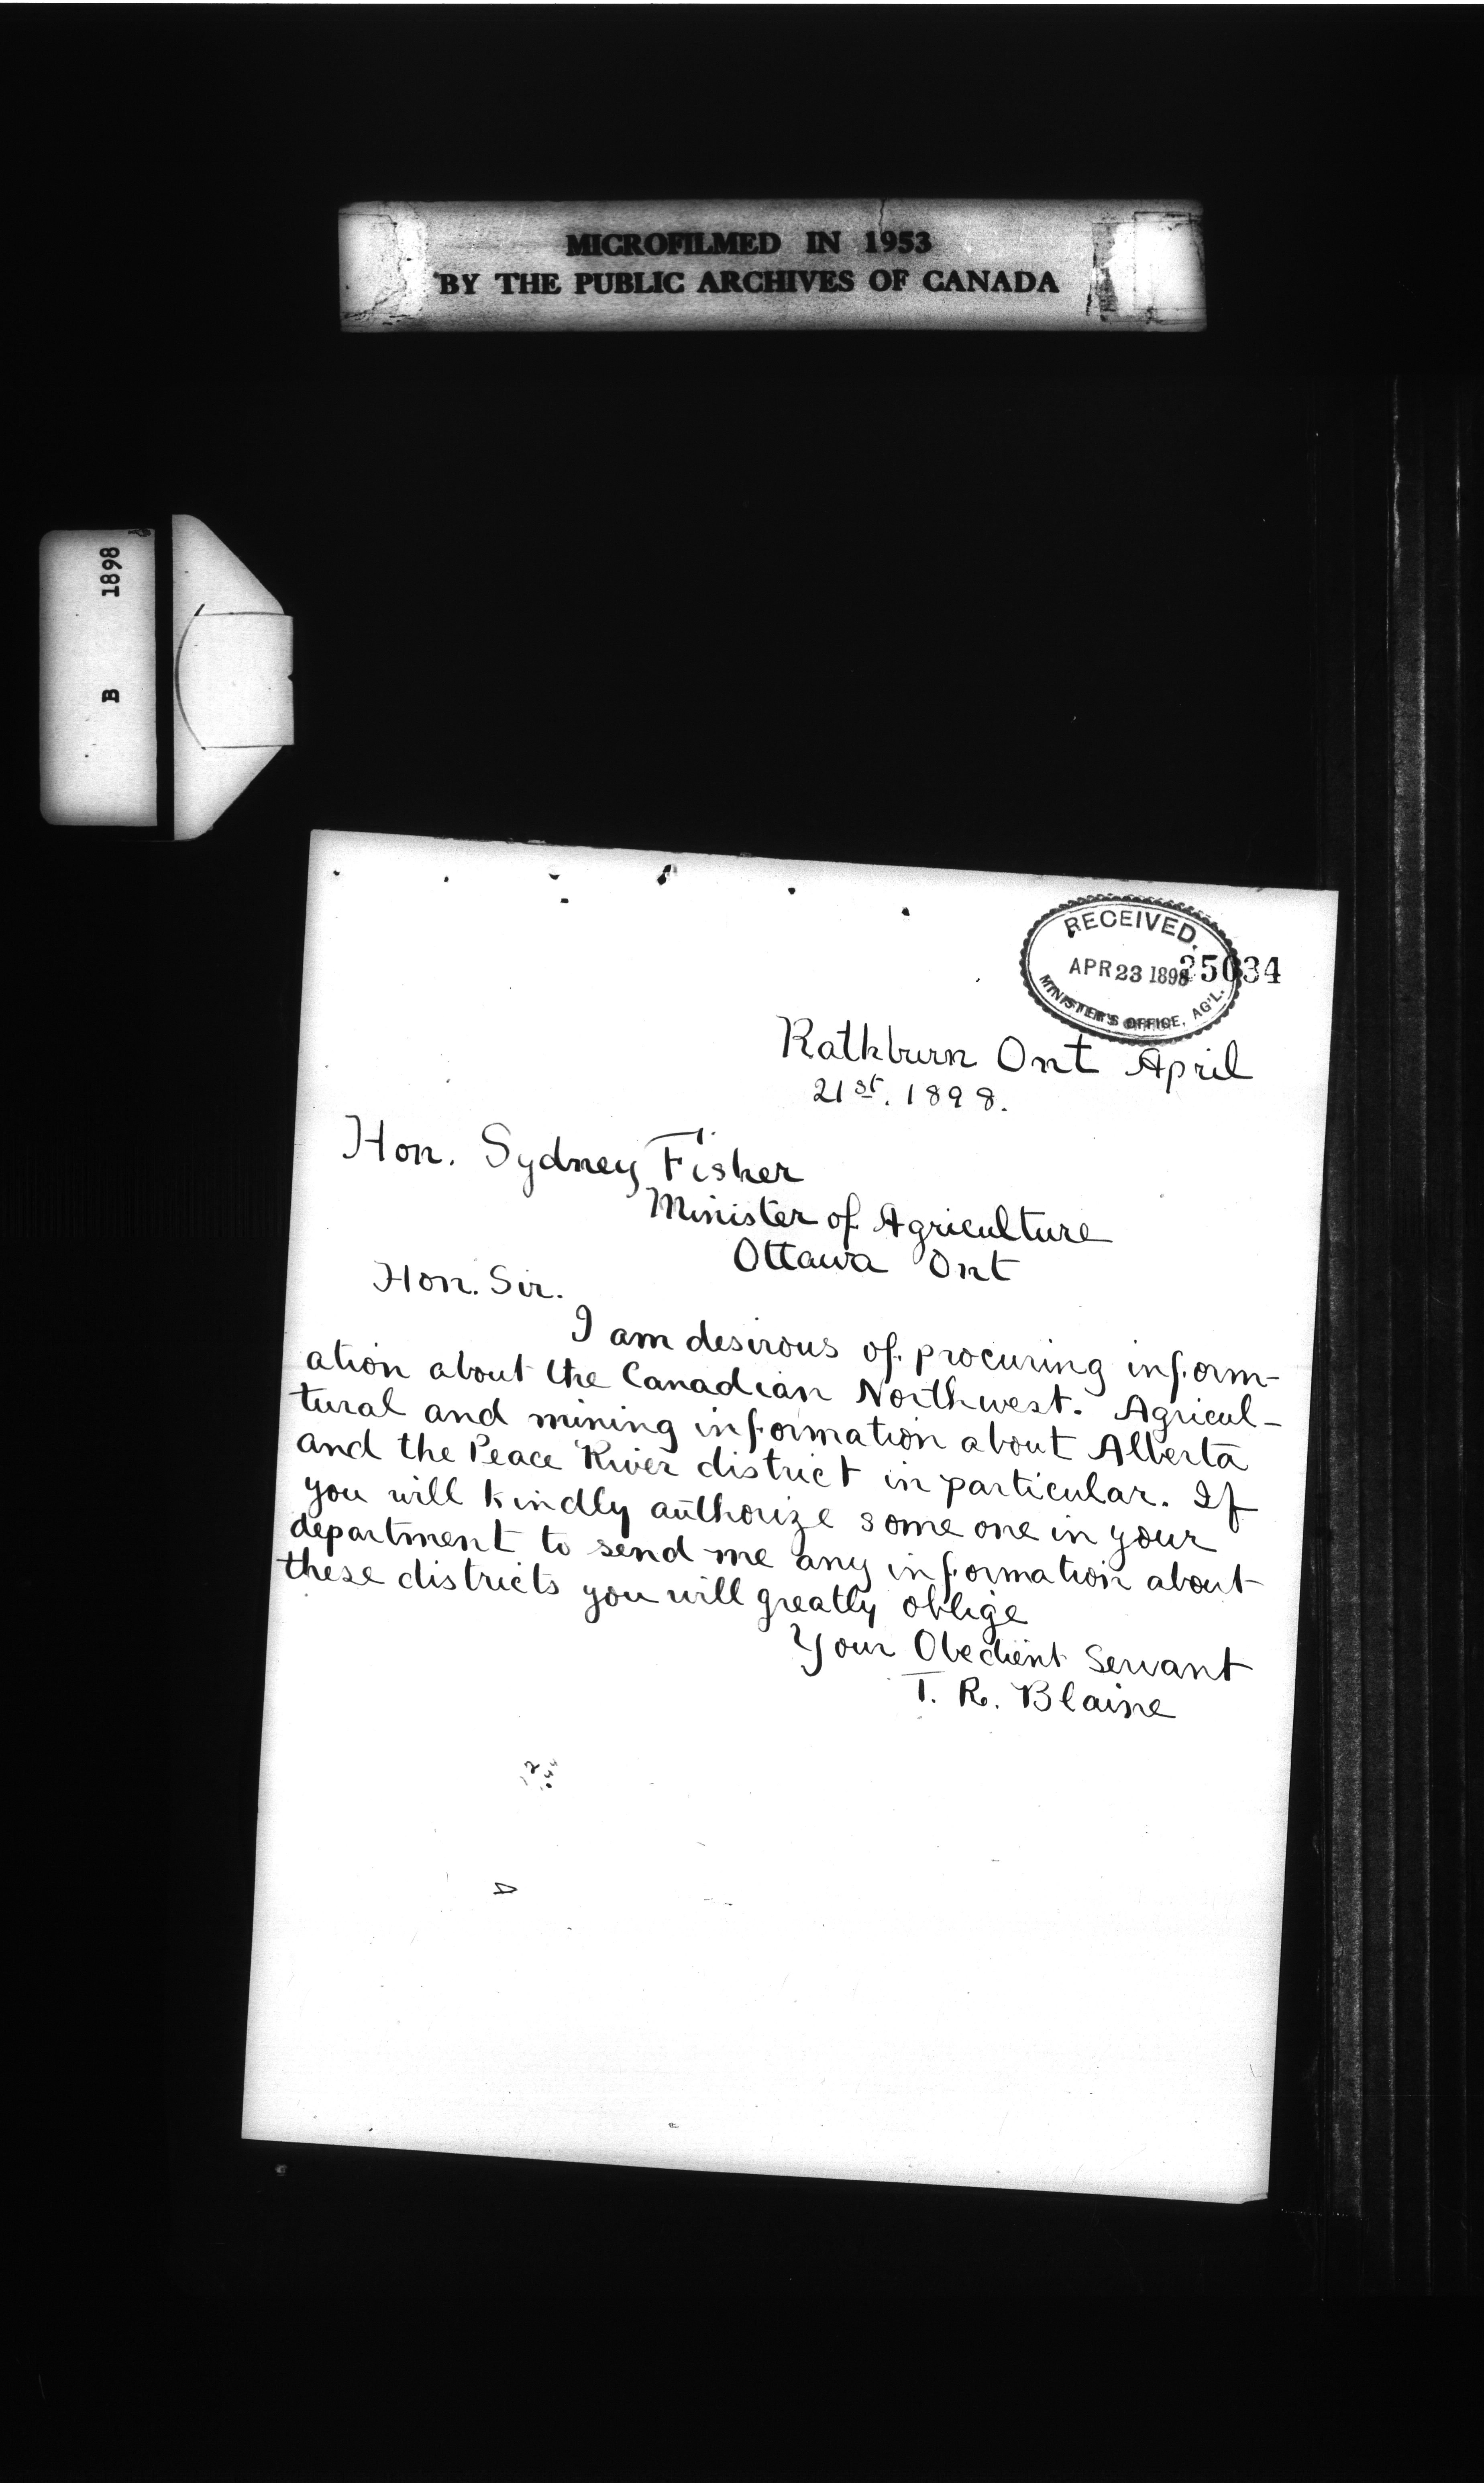 MICROFILMED IN 1953
BY THE PUBLIC ARCHIVES OF CANADA
B 1898
RECEIVED.
APR 23 1898
MINISTER'S OFFICE, AG'L.
25034
Rathburn Ont April
21st. 1898.
Hon. Sydney Fisher
Minister of Agriculture
Ottawa Ont
Hon. Sir.
I am desirous of procuring inform-
ation about the Canadian Northwest. Agricul-
tural and mining information about Alberta
and the Peace River district in particular. If
you will kindly authorize some one in your
department to send me any information about
these districts you will greatly oblige
Your Obedient Servant
T. R. Blaine